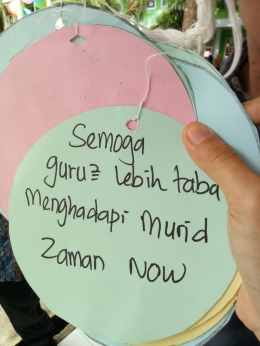 Semoga
guru2 lebih taba
menghadapi murid
zaman NOW